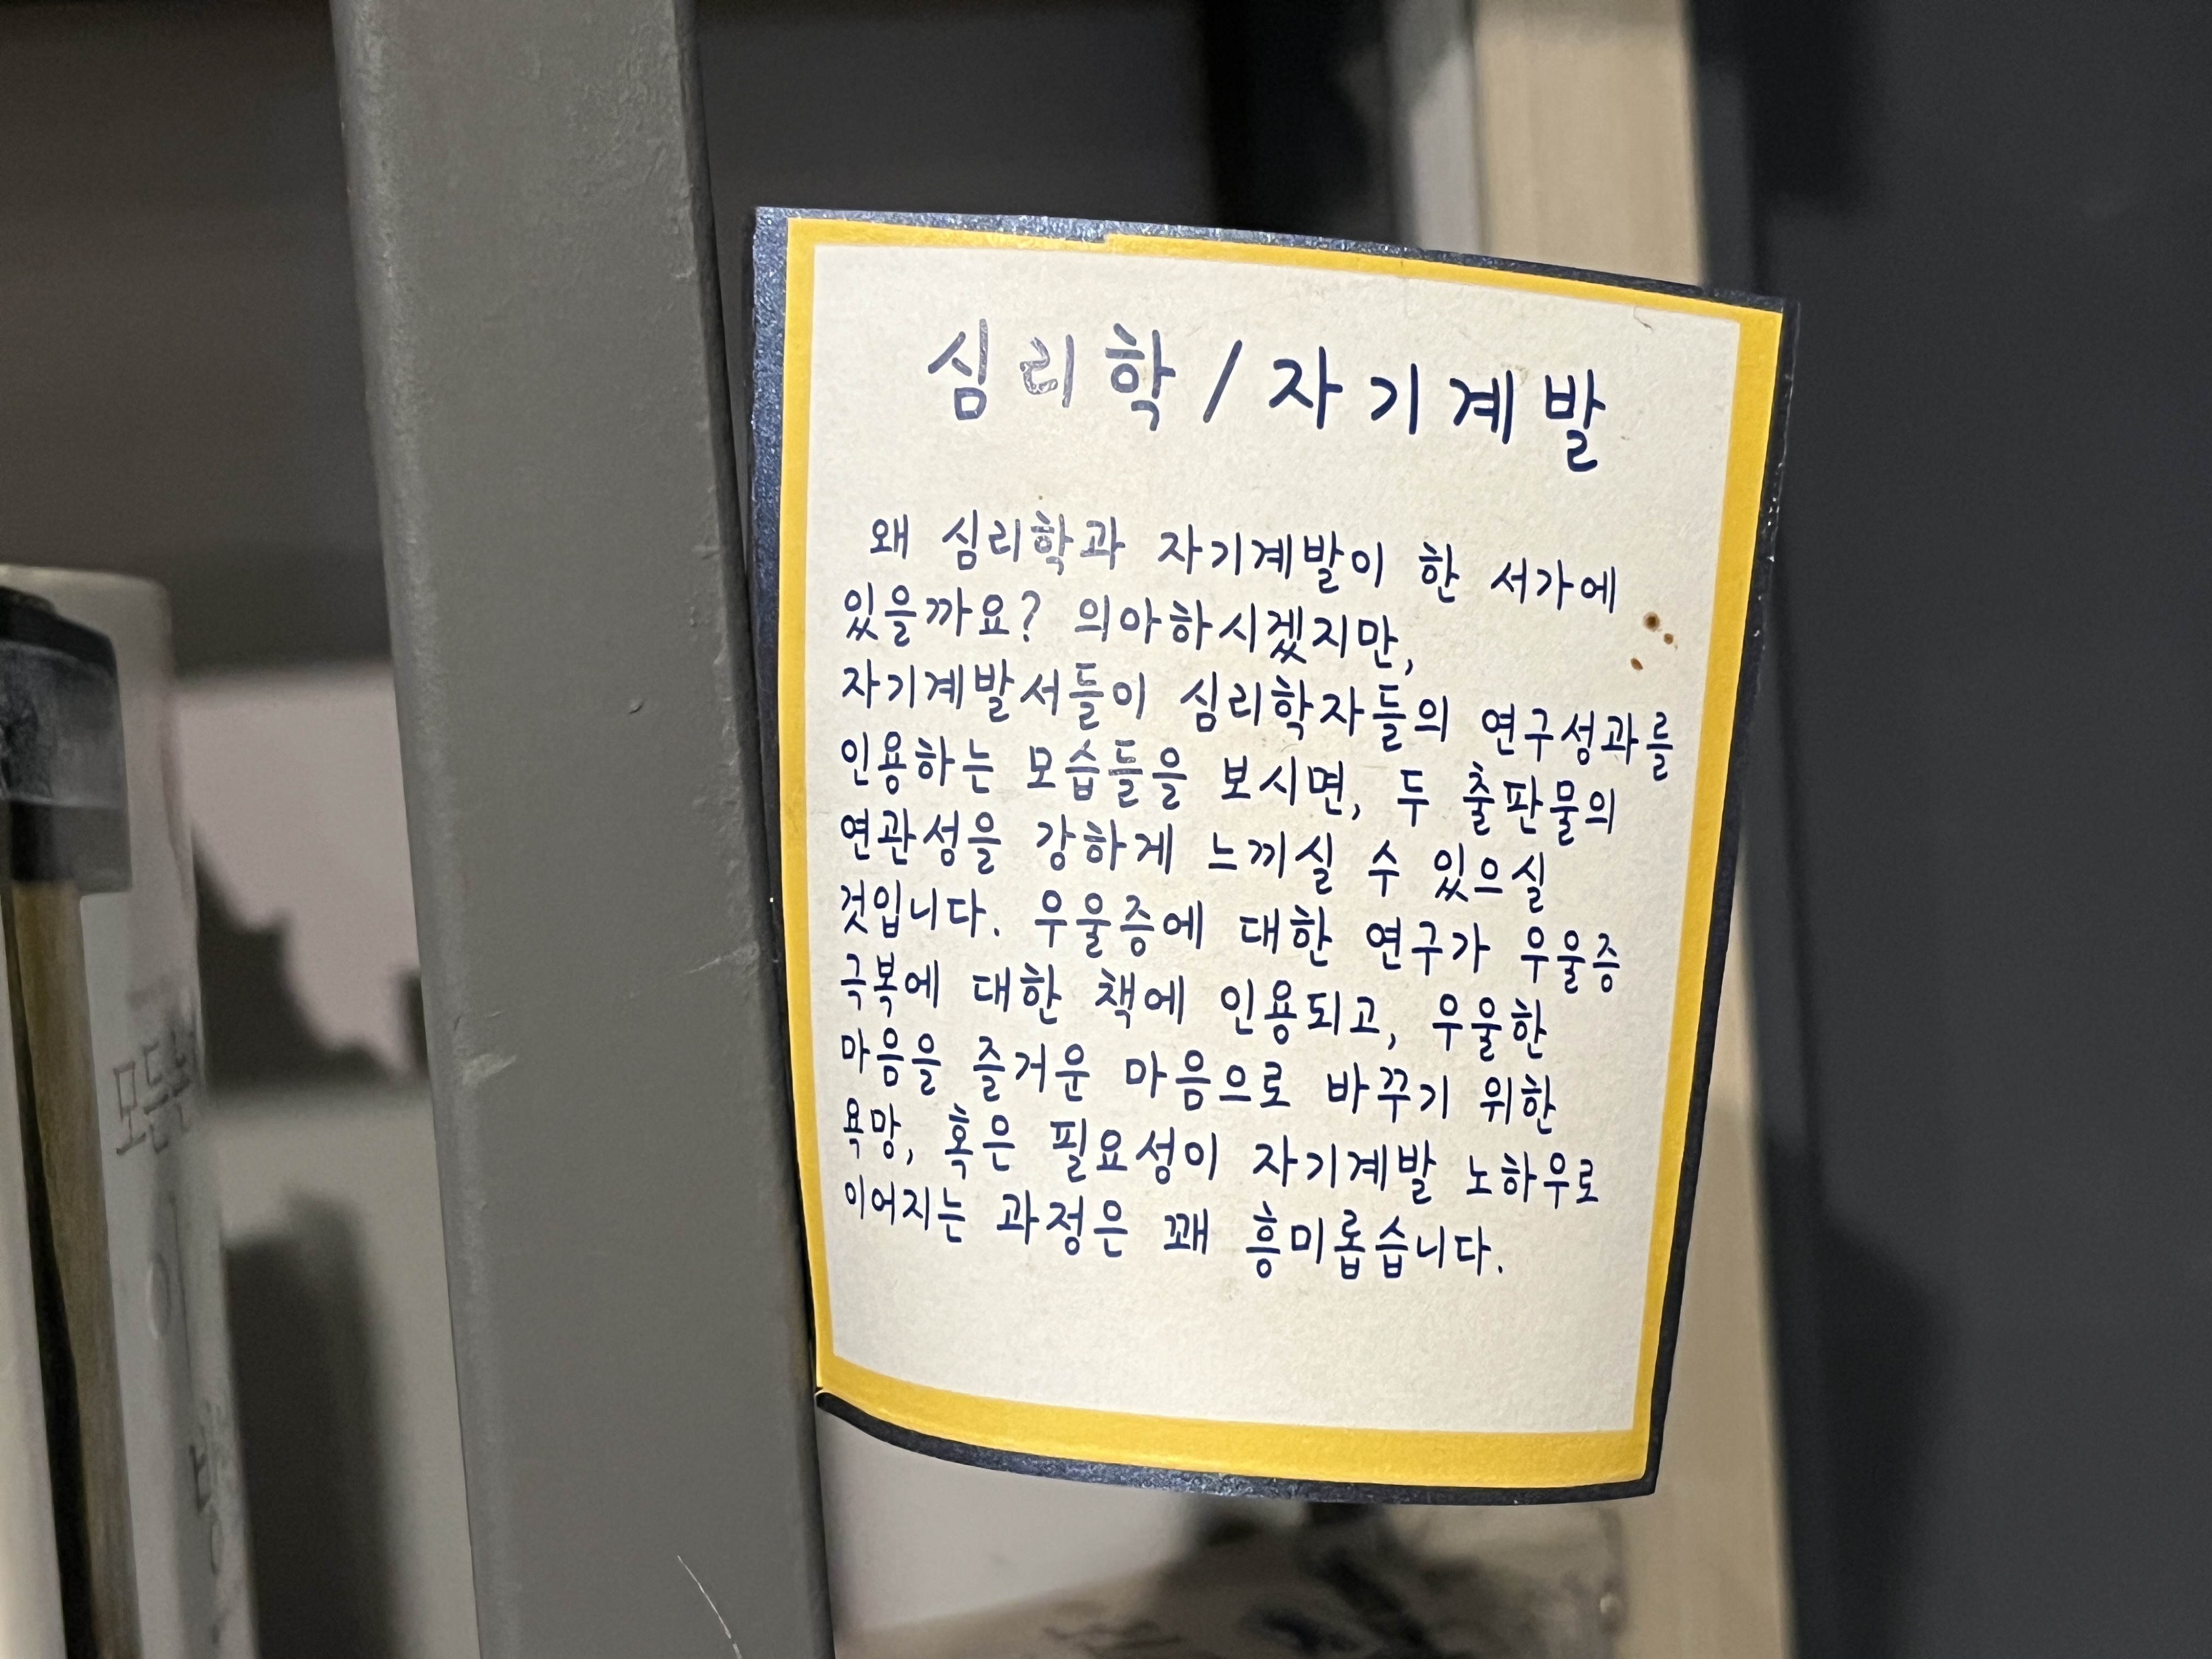 심리학/자기계발
왜 심리학과 자기계발이 한 서가에
있을까요? 의아하시겠지만,
자기계발서들이 심리학자들의 연구성과를
인용하는 모습들을 보시면, 두 출판물의
연관성을 강하게 느끼실 수 있으실
것입니다. 우울증에 대한 연구가 우울증
극복에 대한 책에 인용되고, 우울한
마음을 즐거운 마음으로 바꾸기 위한
욕망, 혹은 필요성이 자기계발 노하우로
이어지는 과정은 꽤 흥미롭습니다.